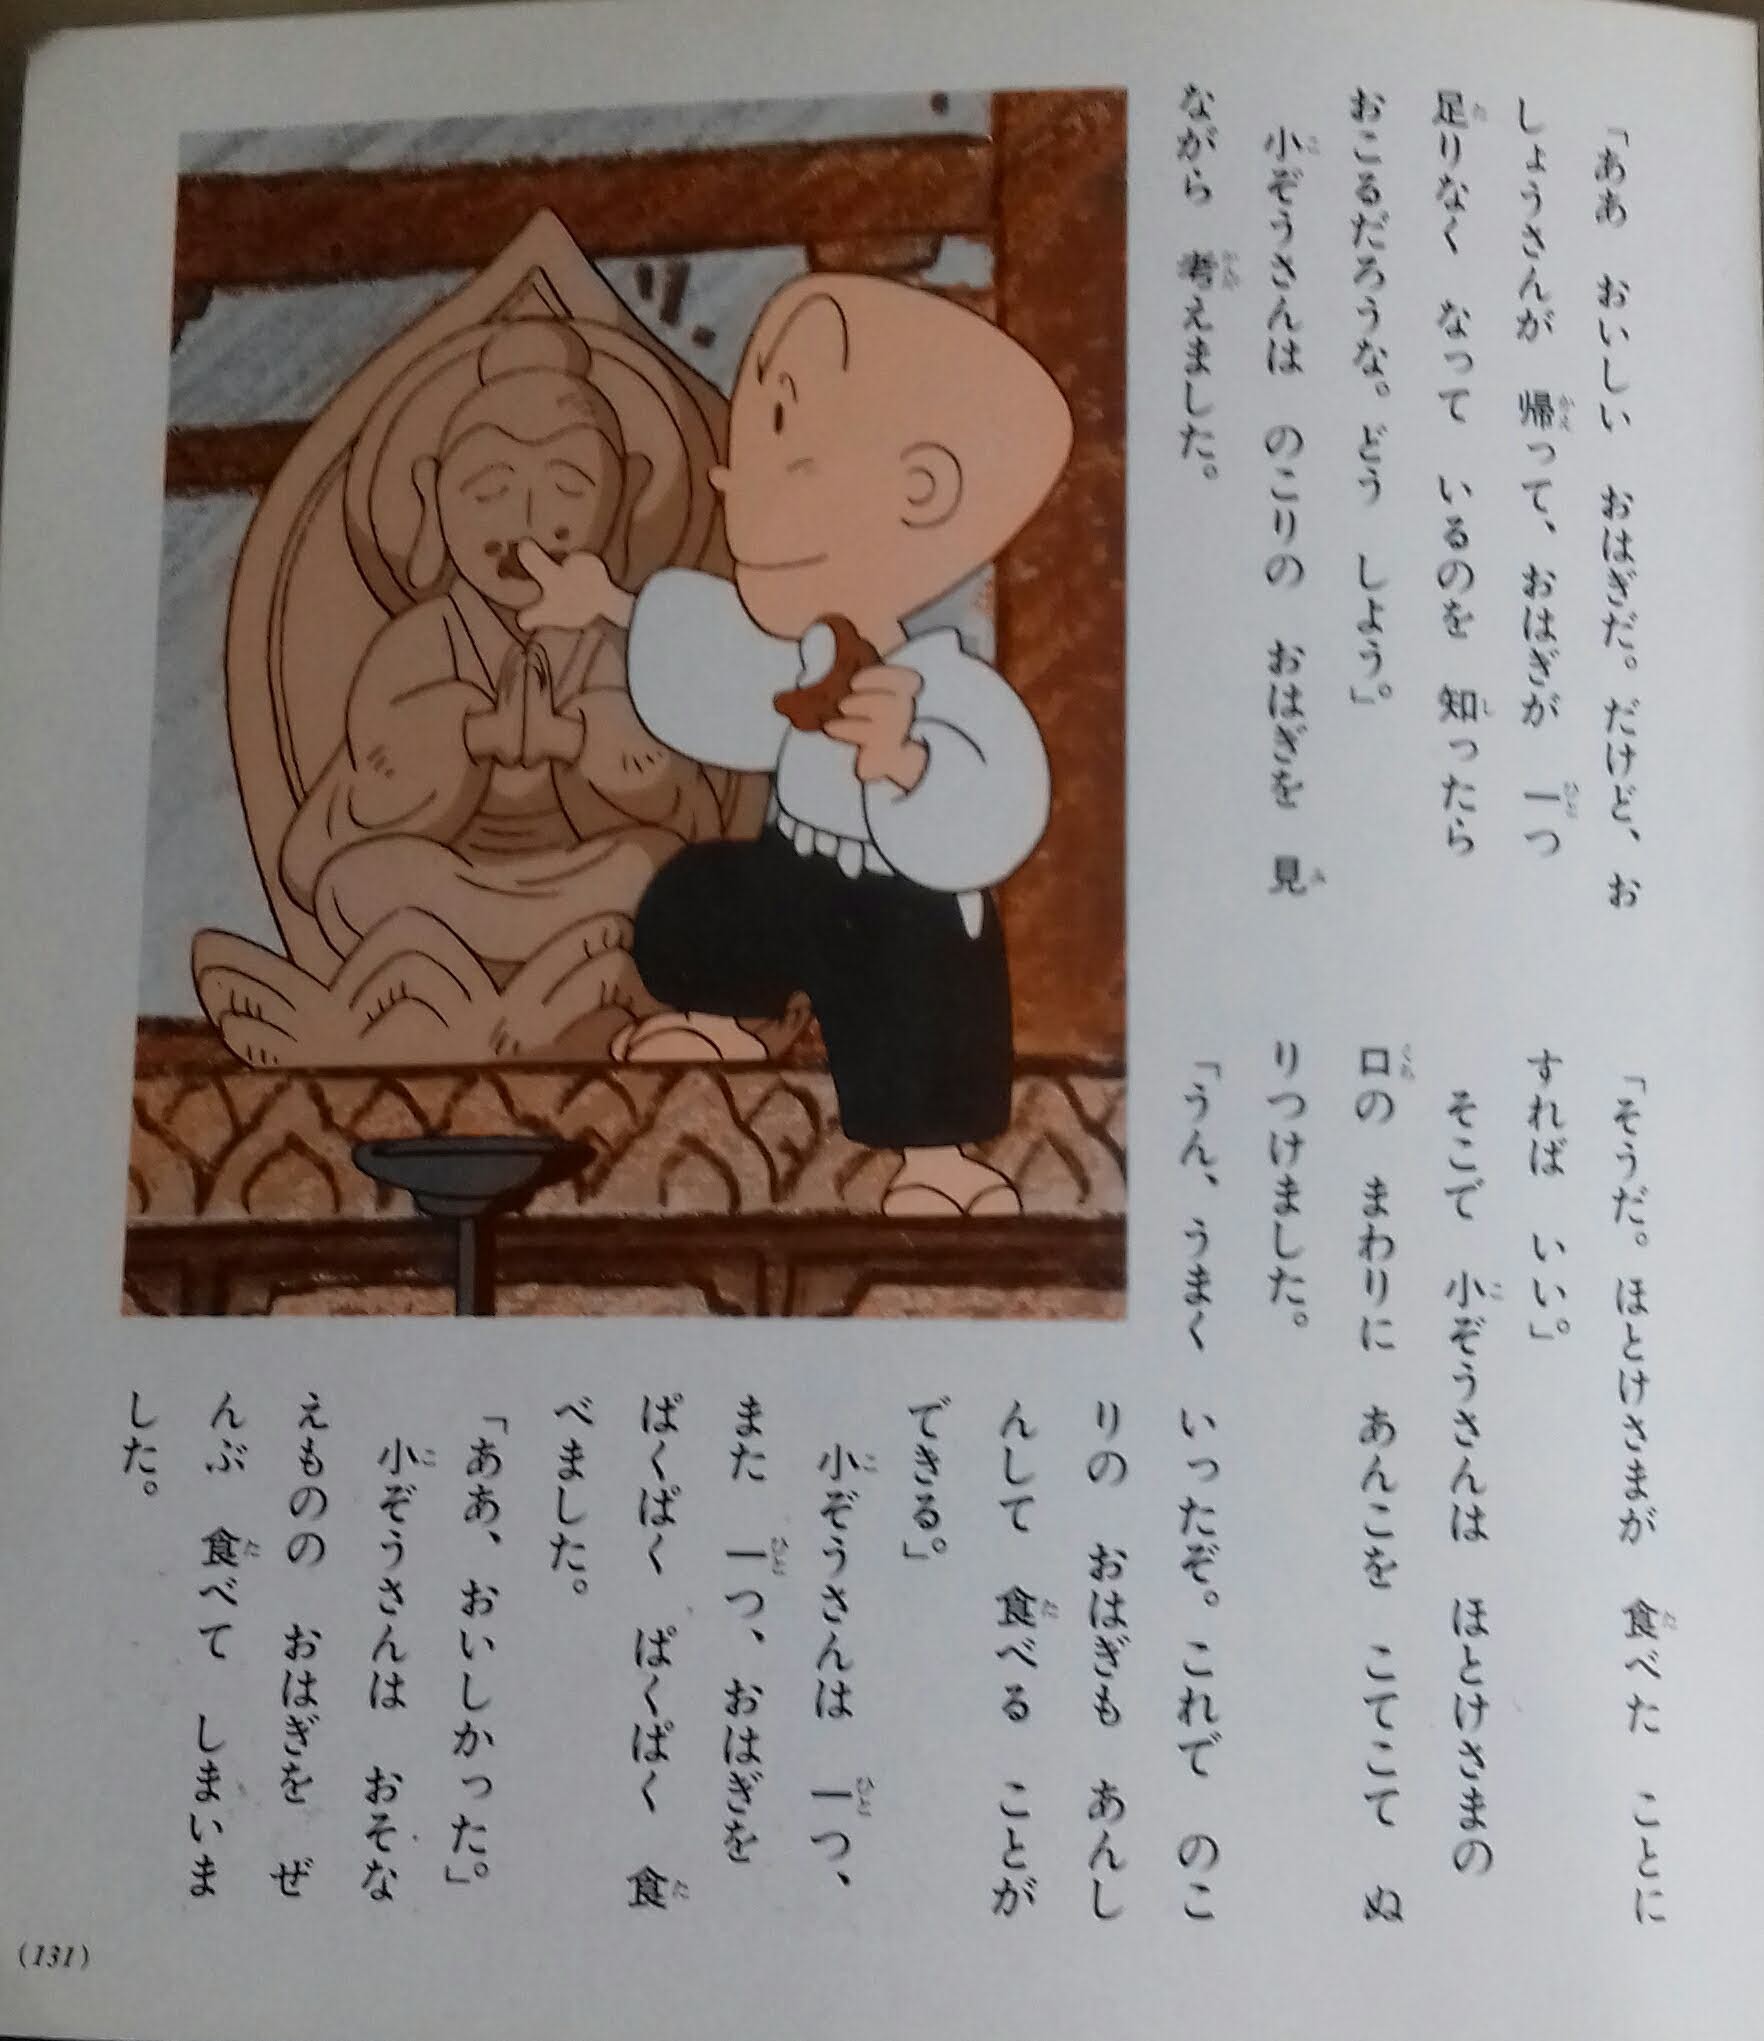 「ああ　おいしい　おはぎだ。だけど、お
しょうさんが　帰って、おはぎが　一つ
足りなく　なって　いるのを　知ったら
おこるだろうな。どう　しよう」
小ぞうさんは　のこりの　おはぎを　見
ながら　考えました。
「そうだ。ほとけさまが　食べた　ことに
すれば　いい」
そこで　小ぞうさんは　ほとけさまの
口の　まわりに　あんこを　こてこて　ぬ
りつけました。
「うん、うまく　いったぞ。これで　のこ
りの　おはぎも　あんし
んして　食べる　ことが
できる」
小ぞうさんは　一つ、
また　一つ、おはぎを
ぱくぱく　ぱくぱく　食
べました。
「ああ、おいしかった」
小ぞうさんは　おそな
えものの　おはぎを　ぜ
んぶ　食べて　しまいま
した。
(131)